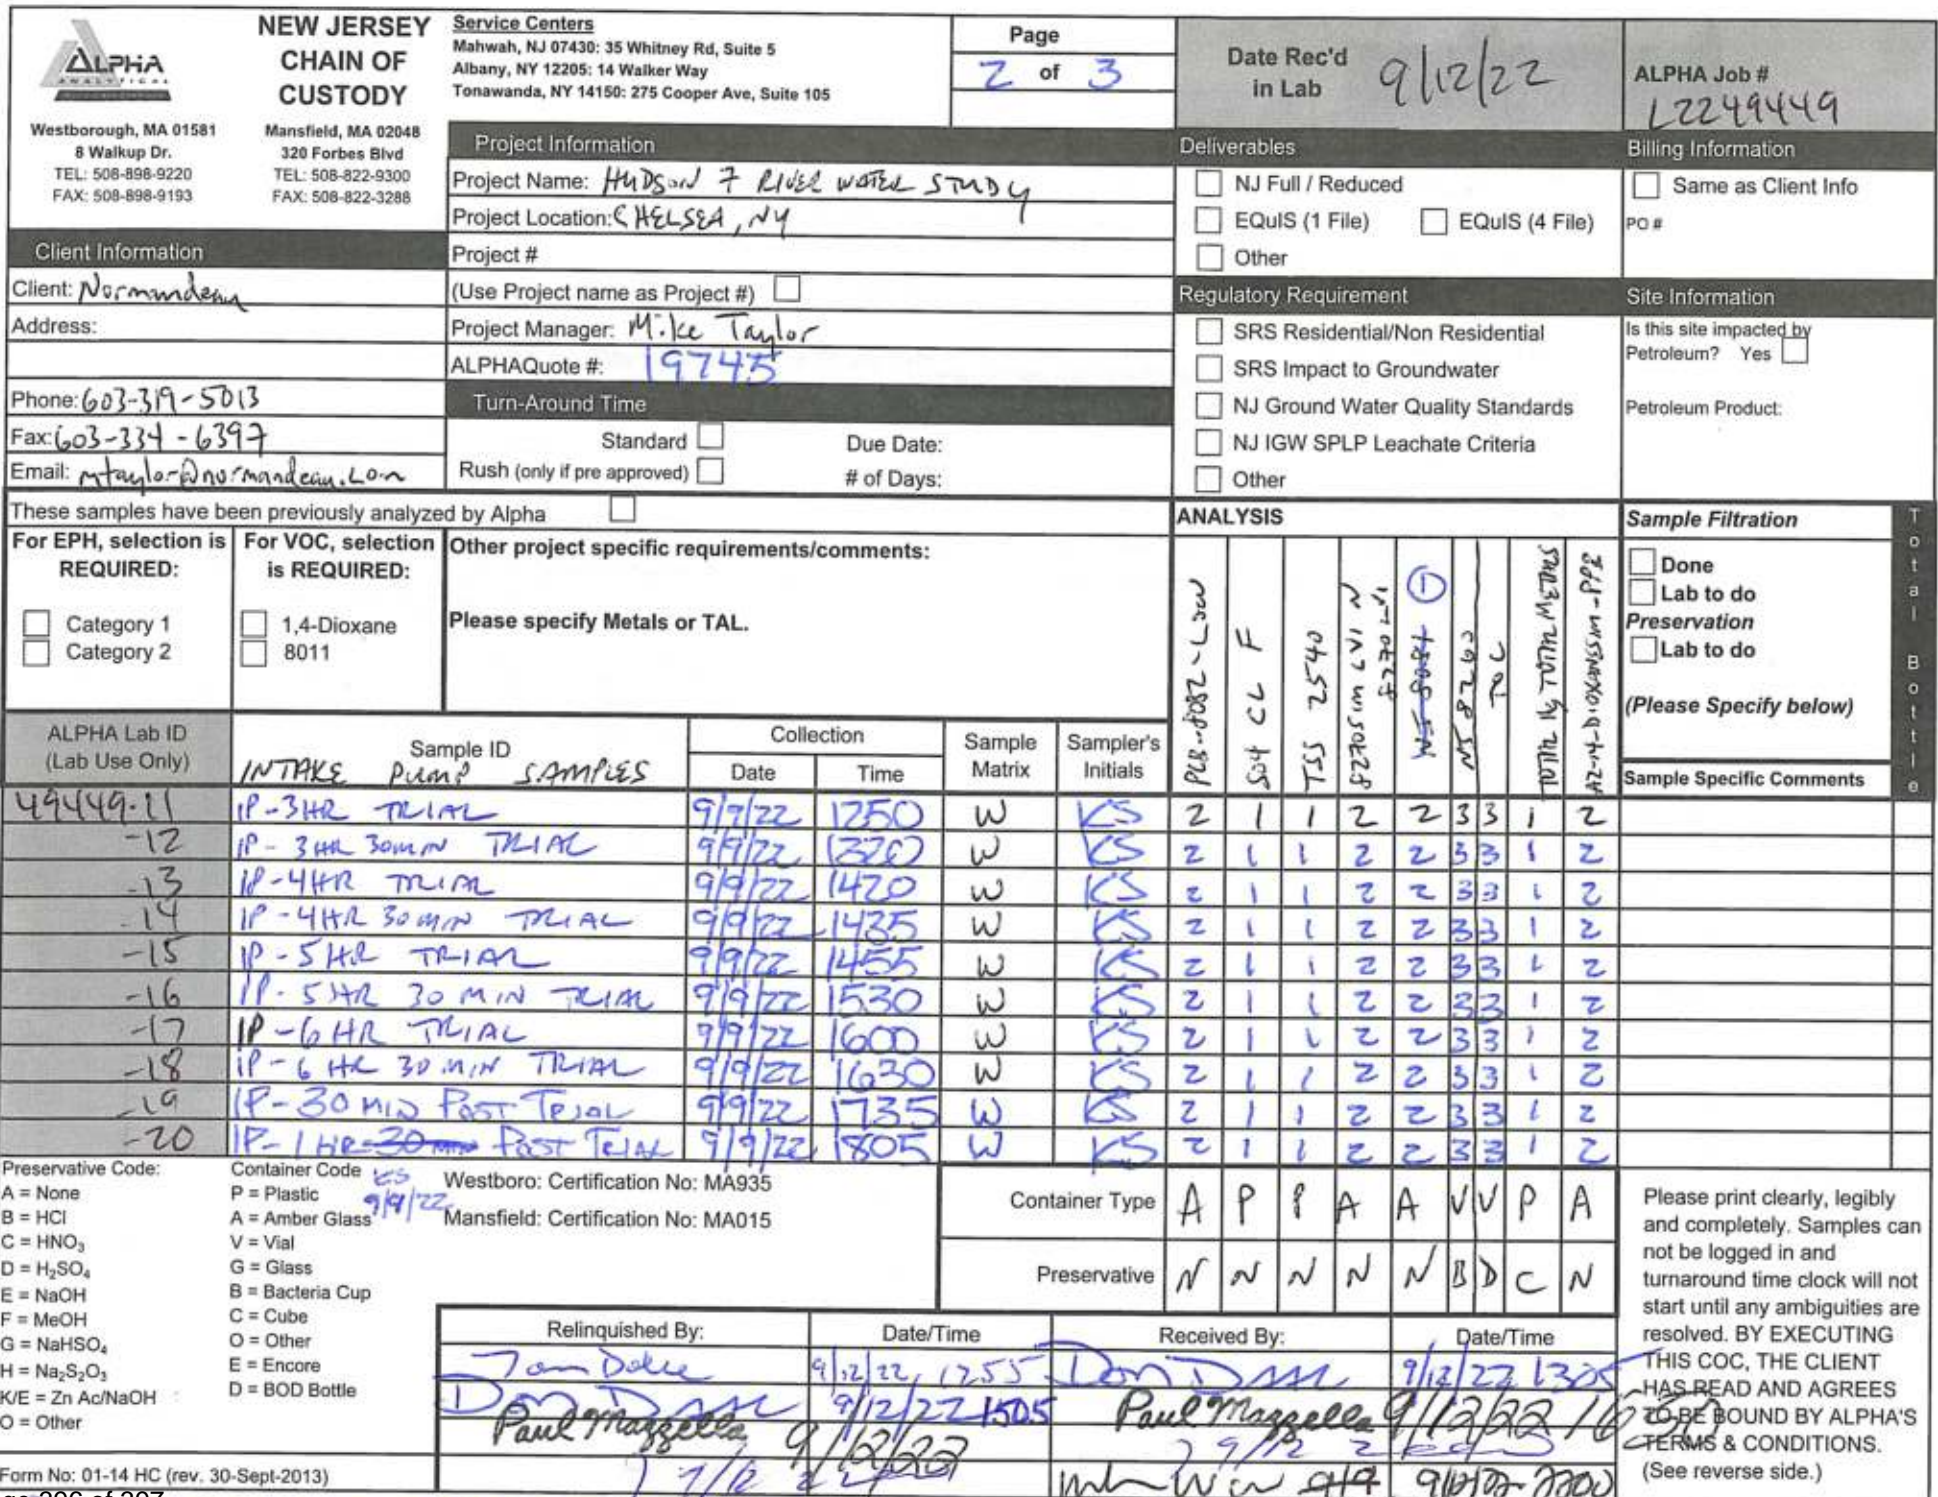 ALPHA
ANALYTICAL
NEW JERSEY
CHAIN OF
CUSTODY
Westborough, MA 01581
8 Walkup Dr.
TEL: 508-898-9220
FAX: 508-898-9193
Mansfield, MA 02048
320 Forbes Blvd
TEL: 508-822-9300
FAX: 508-822-3288
Service Centers
Mahwah, NJ 07430: 35 Whitney Rd, Suite 5
Albany, NY 12205: 14 Walker Way
Tonawanda, NY 14150: 275 Cooper Ave, Suite 105
Page
2 of 3
Date Rec'd
in Lab 9/12/22
ALPHA Job #
L2249449
Project Information
Project Name: HUDSON 7 RIVER WATER STUDY
Project Location: CHELSEA, NY
Project #
(Use Project name as Project #)
Project Manager: Mike Taylor
ALPHAQuote #: 19745
Turn-Around Time
Standard Due Date:
Rush (only if pre approved) # of Days:
Client Information
Client: Normandeau
Address:
Phone: 603-319-5013
Fax: 603-334-6397
Email: mtaylor@normandeau.com
Deliverables
NJ Full / Reduced
EQuIS (1 File) EQuIS (4 File)
Other
Regulatory Requirement
SRS Residential/Non Residential
SRS Impact to Groundwater
NJ Ground Water Quality Standards
NJ IGW SPLP Leachate Criteria
Other
Billing Information
Same as Client Info
PO #
Site Information
Is this site impacted by
Petroleum? Yes
Petroleum Product:
These samples have been previously analyzed by Alpha
For EPH, selection is
REQUIRED:
Category 1
Category 2
For VOC, selection
is REQUIRED:
1,4-Dioxane
8011
Other project specific requirements/comments:
Please specify Metals or TAL.
ANALYSIS
TSS 2540
NJ 8260
TOC
Sample Filtration
Done
Lab to do
Preservation
Lab to do
(Please Specify below)
Total Bottle
ALPHA Lab ID
(Lab Use Only)
Sample ID
INTAKE PUMP SAMPLES
Collection
Date Time
Sample
Matrix
Sampler's
Initials
Sample Specific Comments
49449-11 IP-3HR TRIAL 9/9/22 1250 W KS 2 1 1 2 2 3 3 1 2
-12 IP-3HR 30MIN TRIAL 9/9/22 1320 W KS 2 1 1 2 2 3 3 1 2
-13 IP-4HR TRIAL 9/9/22 1420 W KS 2 1 1 2 2 3 3 1 2
-14 IP-4HR 30MIN TRIAL 9/9/22 1435 W KS 2 1 1 2 2 3 3 1 2
-15 IP-5HR TRIAL 9/9/22 1455 W KS 2 1 1 2 2 3 3 1 2
-16 IP-5HR 30 MIN TRIAL 9/9/22 1530 W KS 2 1 1 2 2 3 3 1 2
-17 IP-6HR TRIAL 9/9/22 1600 W KS 2 1 1 2 2 3 3 1 2
-18 IP-6 HR 30 MIN TRIAL 9/9/22 1630 W KS 2 1 1 2 2 3 3 1 2
-19 IP-30 MIN POST TRIAL 9/9/22 1735 W KS 2 1 1 2 2 3 3 1 2
-20 IP-1HR 30 MIN POST TRIAL 9/9/22 1805 W KS 2 1 1 2 2 3 3 1 2
KS
9/9/22
Preservative Code:
A = None
B = HCl
C = HNO3
D = H2SO4
E = NaOH
F = MeOH
G = NaHSO4
H = Na2S2O3
K/E = Zn Ac/NaOH
O = Other
Container Code
P = Plastic
A = Amber Glass
V = Vial
G = Glass
B = Bacteria Cup
C = Cube
O = Other
E = Encore
D = BOD Bottle
Westboro: Certification No: MA935
Mansfield: Certification No: MA015
Container Type A P P A A V V P A
Preservative N N N N N B D C N
Relinquished By: Date/Time Received By: Date/Time
9/12/22 1255 9/12/22 1305
9/12/22 1505
Paul Mazzella 9/12/22
Paul Mazzella 9/12/22 1630
Please print clearly, legibly
and completely. Samples can
not be logged in and
turnaround time clock will not
start until any ambiguities are
resolved. BY EXECUTING
THIS COC, THE CLIENT
HAS READ AND AGREES
TO BE BOUND BY ALPHA'S
TERMS & CONDITIONS.
(See reverse side.)
Form No: 01-14 HC (rev. 30-Sept-2013)